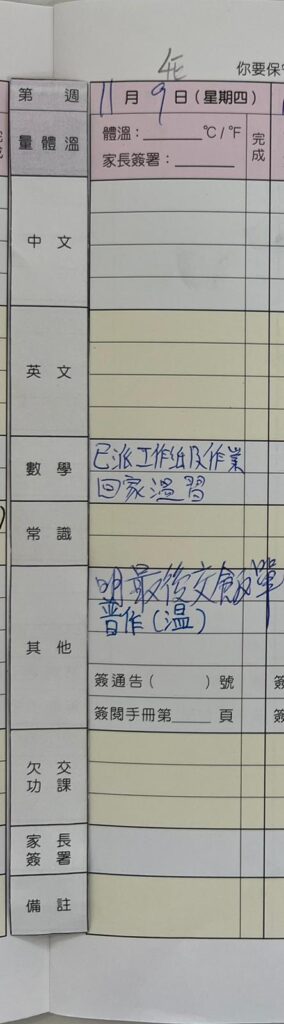 4E
你要保
第 週
11月9日(星期四)
量體溫
體溫:______°C/°F
家長簽署:______
完成
中文
英文
數學
已派工作紙及作業
回家溫習
常識
其他
明最後交飯單
普作(溫)
簽通告( )號
簽閱手冊第____頁
欠交功課
家長簽署
備註